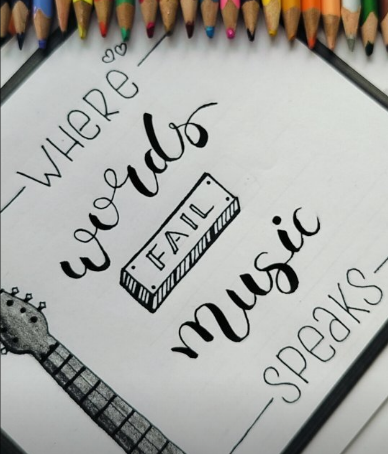 WHERE
words
FAIL
music
SPEAKS